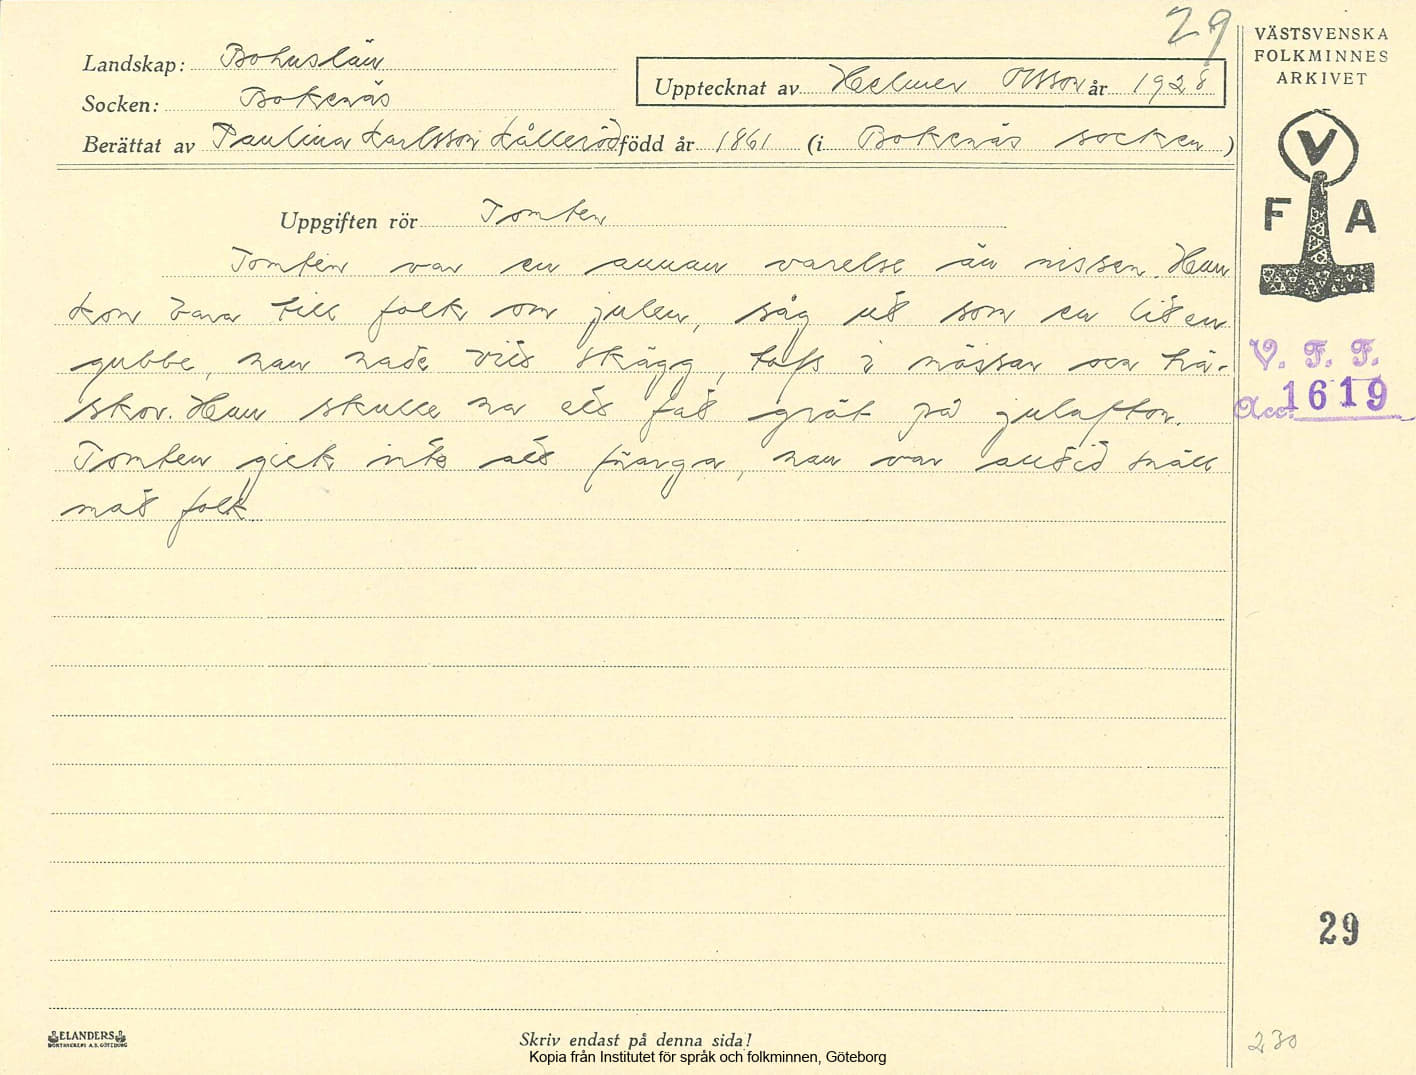 29
VÄSTSVENSKA
FOLKMINNES
ARKIVET
Landskap: Bohuslän
Upptecknat av Helmer Olsson år 1928
Socken: Bokenäs
Berättat av Paulina Karlsson Kålleröd född år 1861 (i Bokenäs socken)
V
F A
Uppgiften rör Tomten
Tomten var en annan varelse än nissen. Han
kon bara till folk om julen, såg ut som en liten
gubbe, han hade vitt skägg, tofs i mössan och trä-
skor. Han skulle ha ett fat gröt på julafton.
Tomten gick inte att fånga, han var alltid snäll
mot folk.
V. F. F.
Acc. 1619
29
ELANDERS
BOKTRYCKERI A.B. GÖTEBORG
Skriv endast på denna sida!
Kopia från Institutet för språk och folkminnen, Göteborg
230